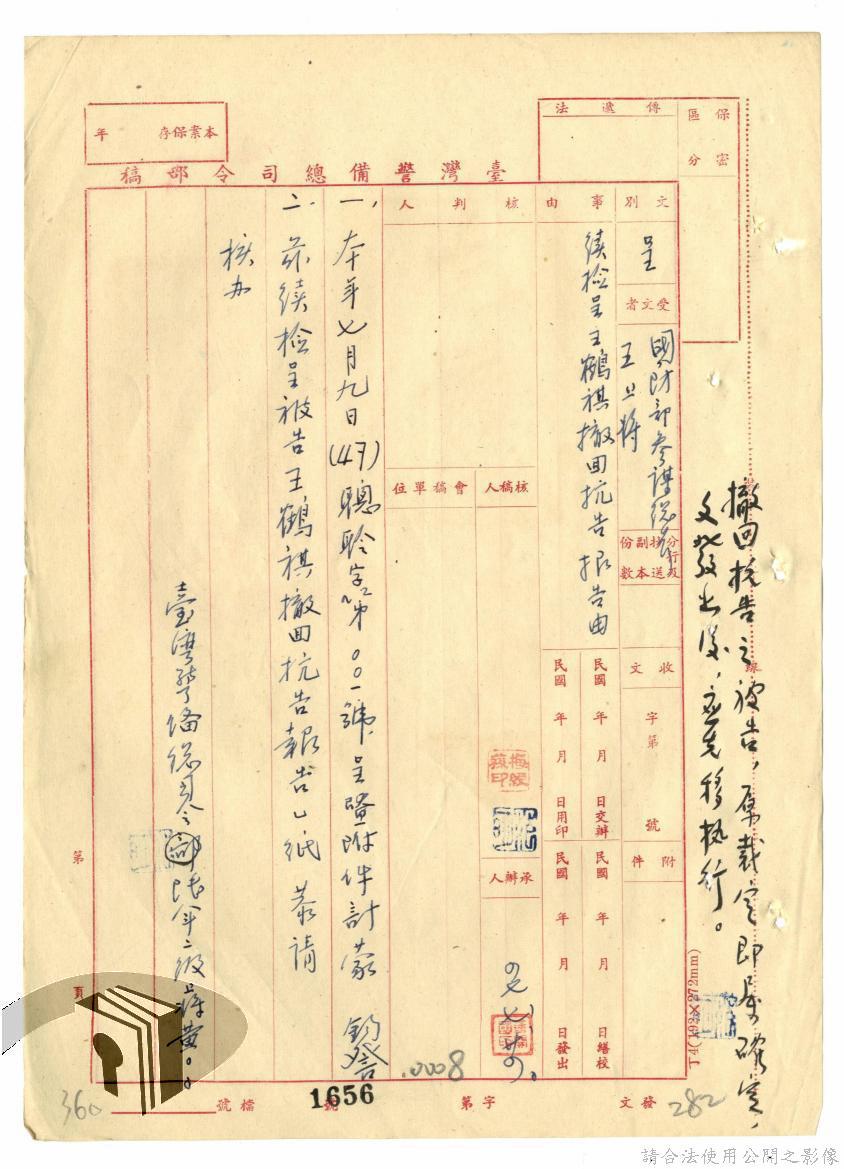 保密區分
傳遞法
本案保存年
臺灣警備總司令部稿
文別
呈
受文者
國防部參謀總長
王上將
分行或抄送
副本份數
事由
續檢呈王鶴祺撤回抗告報告由
收文
字第號
附件
民國年月日交辦
民國年月日繕校
民國年月日用印
民國年月日發出
核判人
核稿人
會稿單位
承辦人
一、本年七月九日(47)聰聆字第〇〇一號呈暨附件計蒙 鈞詧
二、茲續檢呈被告王鶴祺撤回抗告報告乙紙 恭請
核办
撤回抗告之被告,原裁定即屬確定,
文此發出後,應先移執行。
第
頁
T4(192×272mm)
.0008
360
282
1656
發文
字第
號
檔號
請合法使用公開之影像